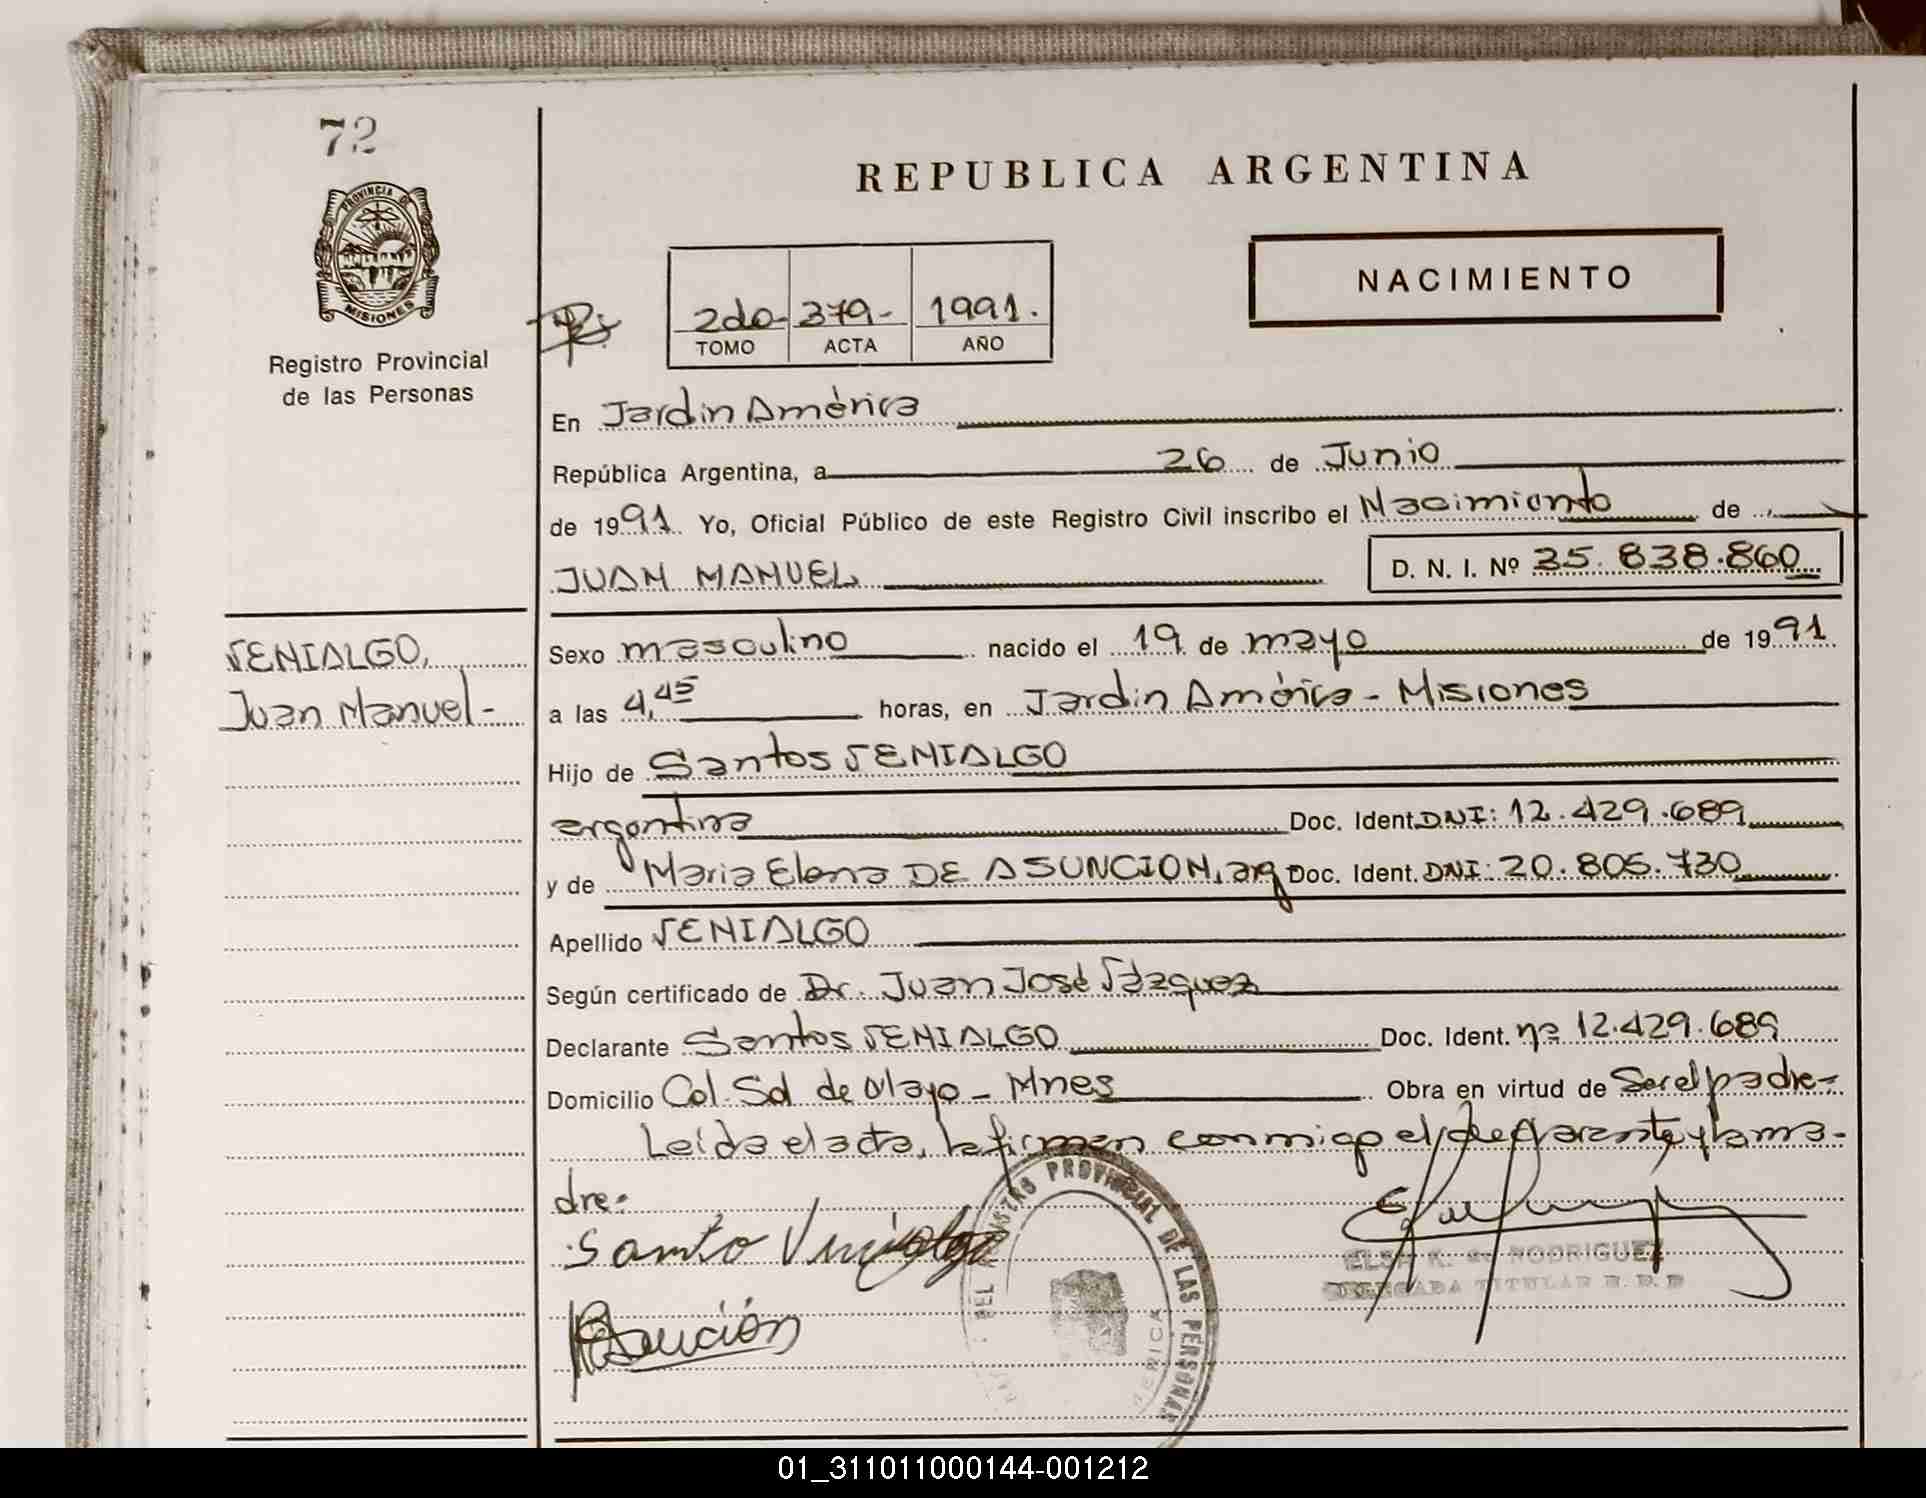 72
PROVINCIA DE
MISIONES
Registro Provincial
de las Personas
REPUBLICA ARGENTINA
NACIMIENTO
2do- 379- 1991.
TOMO ACTA AÑO
En Jardin América
República Argentina, a 26 de Junio
de 1991 Yo, Oficial Público de este Registro Civil inscribo el Nacimiento de
JUAN MANUEL D. N. I. Nº 35.838.860
VENIALGO,
Juan Manuel-
Sexo masculino nacido el 19 de mayo de 1991
a las 4,45 horas, en Jardin América - Misiones
Hijo de Santos VENIALGO
argentina Doc. Ident. DNI: 12.429.689
y de Maria Elena DE ASUNCION, arg Doc. Ident. DNI: 20.805.730
Apellido VENIALGO
Según certificado de Dr. Juan José Vázquez
Declarante Santos VENIALGO Doc. Ident. nº 12.429.689
Domicilio Col. Sol de Mayo - Mnes Obra en virtud de Ser el padre-
Leída el acta, la firman conmigo el declarante y la ma-
dre-
Santo Venialgo
Asunción
PROVINCIAL DE LAS PERSONAS
ELSA K. de RODRIGUEZ
DELEGADA TITULAR
01_311011000144-001212